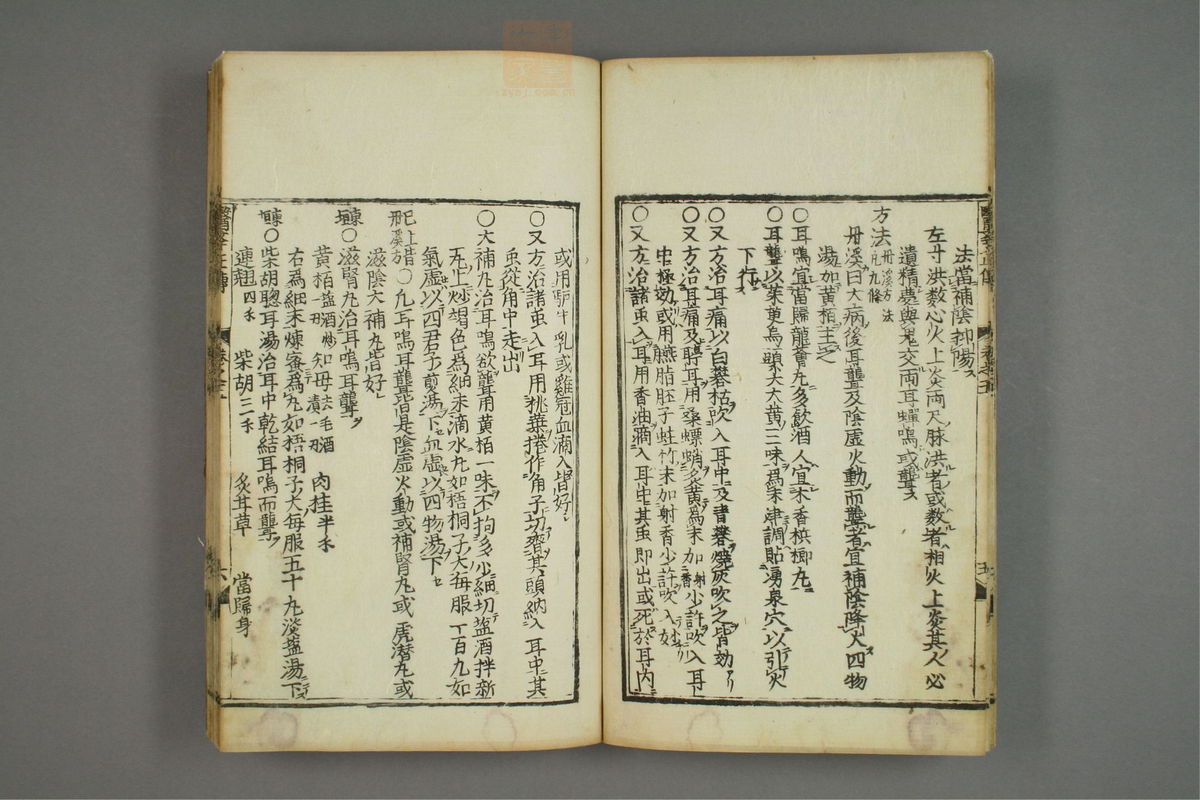 法當補陰抑陽ス
左寸洪數心火上炎両尺脉洪者或數者相火上炎其人必
遺精夢與鬼交両耳蟬鳴或聾ス
方法 丹溪方法 凡九條
丹溪曰大病後耳聾及陰虛火動而聾者宜補陰降火四物
湯加黄栢主之
〇耳鳴宜當歸龍薈丸多飲酒人宜木香梹榔丸
〇耳聾以茱萸烏頭大黄三味為末津調貼湧泉穴以引火
下行ス
〇又方治耳痛以白礬枯吹入耳中及青礬燒灰吹之皆効
〇又方治耳痛及聤耳用桑螵蛸炙黄為末加射香少許吹入耳
中極効或用臙脂胚子蛀竹末加射香少許吹入妙
〇又方治諸虫入耳用香油滴入耳中其虫即出或死於耳内
或用驴牛乳或雞冠血滴入皆好
〇又方治諸虫入耳用桃葉捲作角子切齊其頭納入耳中其
虫從角中走出
〇大補丸治耳鳴欲聾用黄栢一味不拘多少細切盐酒拌新
瓦上炒褐色為細末滴水丸如梧桐子大每服一百丸如
氣虛以四君子煎湯下血虛以四物湯下
已上皆丹溪方〇凡耳鳴耳聾皆是陰虛火動或補腎丸或虎潜丸或
滋陰大補丸皆好
東垣〇滋腎丸治耳鳴耳聾
黄栢盐酒炒一刄 知母去毛酒漬一刄 肉桂半
右為細末煉蜜為丸如梧桐子大每服五十丸淡盐湯下
東垣〇柴胡聰耳湯治耳中乾結耳鳴而聾
連翹四 柴胡三 炙耳草 當歸身